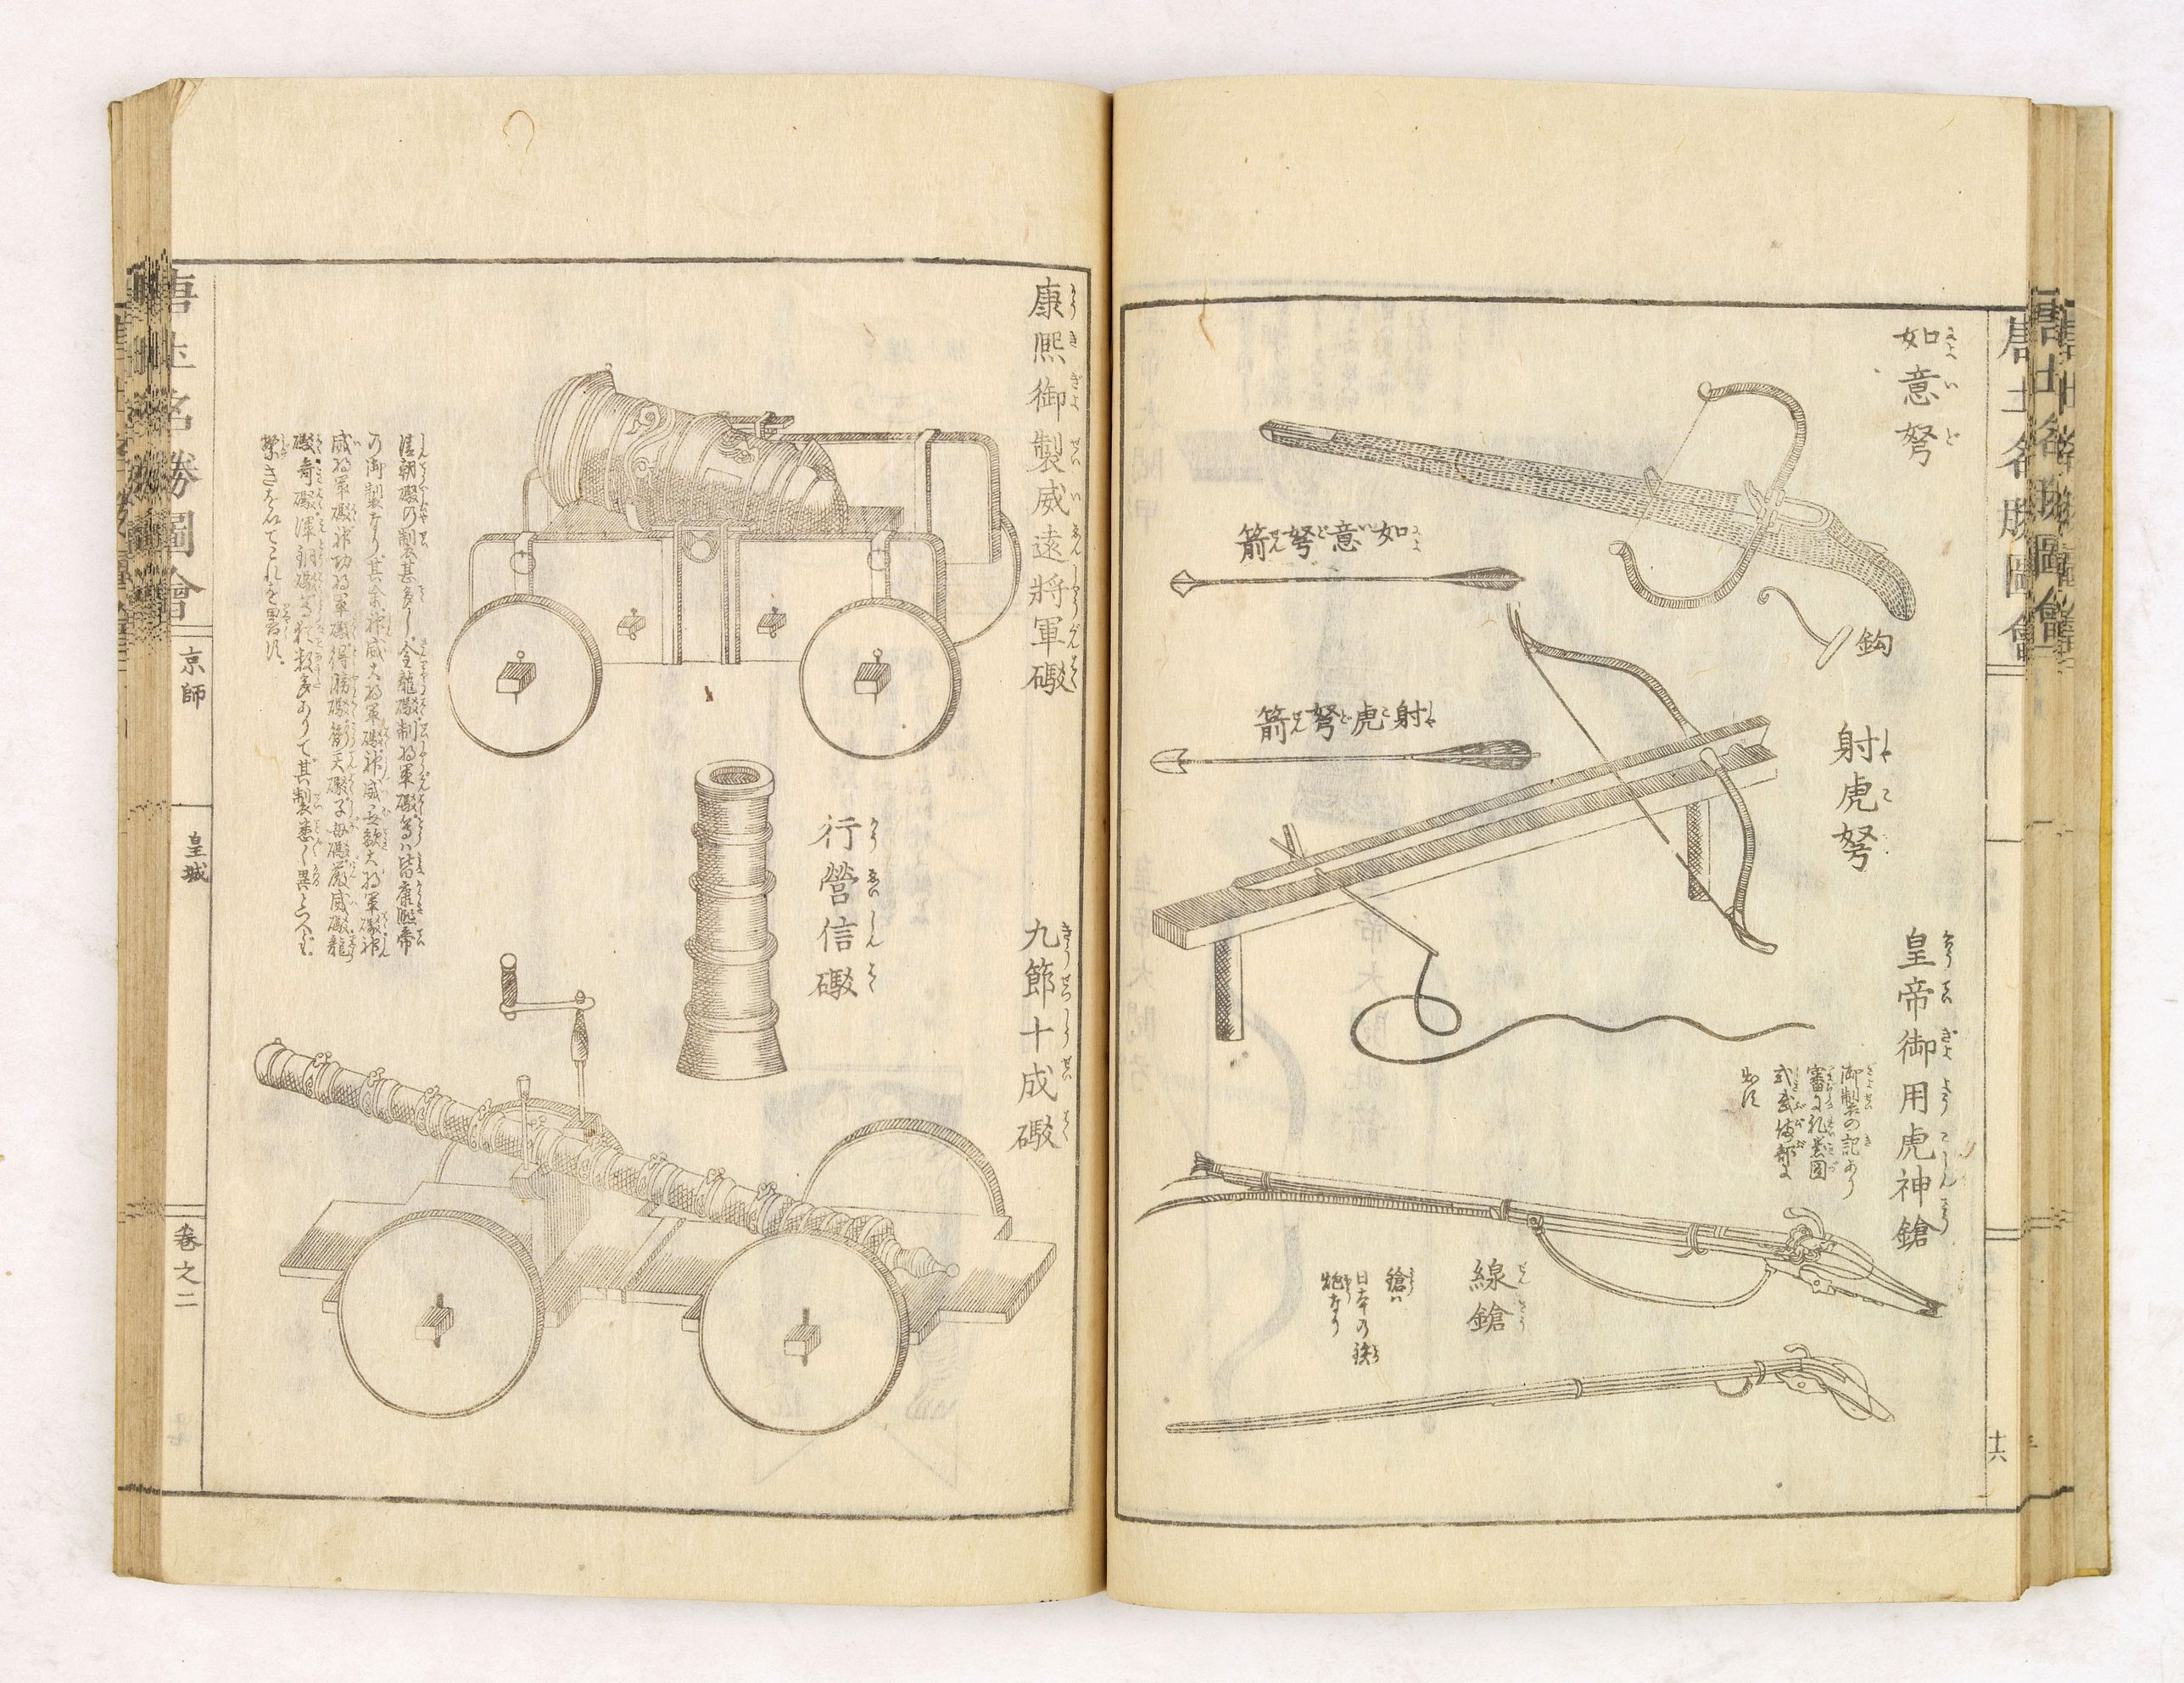 如意弩
如意弩箭
鈎
射虎弩
射虎弩箭
皇帝御用虎神鎗
御製の記あり
審に礼器図
式武備部に
出す
線鎗
鎗ハ
日本の鉄
炮なり
十六
康熙御製威遠將軍礮
行營信礮
九節十成礮
清朝礮の制甚多し金龍礮制勝將軍礮等ハ皆康熙帝
の御製なり其余神威大將軍礮神威無敵大將軍礮神
威將軍礮神功將軍礮得勝礮衝天礮子母礮嚴威礮龍
礮奇礮渾銅礮等猶数多ありて其製悉く異といへども
繁きをもてこれを畧す
唐土名勝圖會
京師
皇城
卷之二